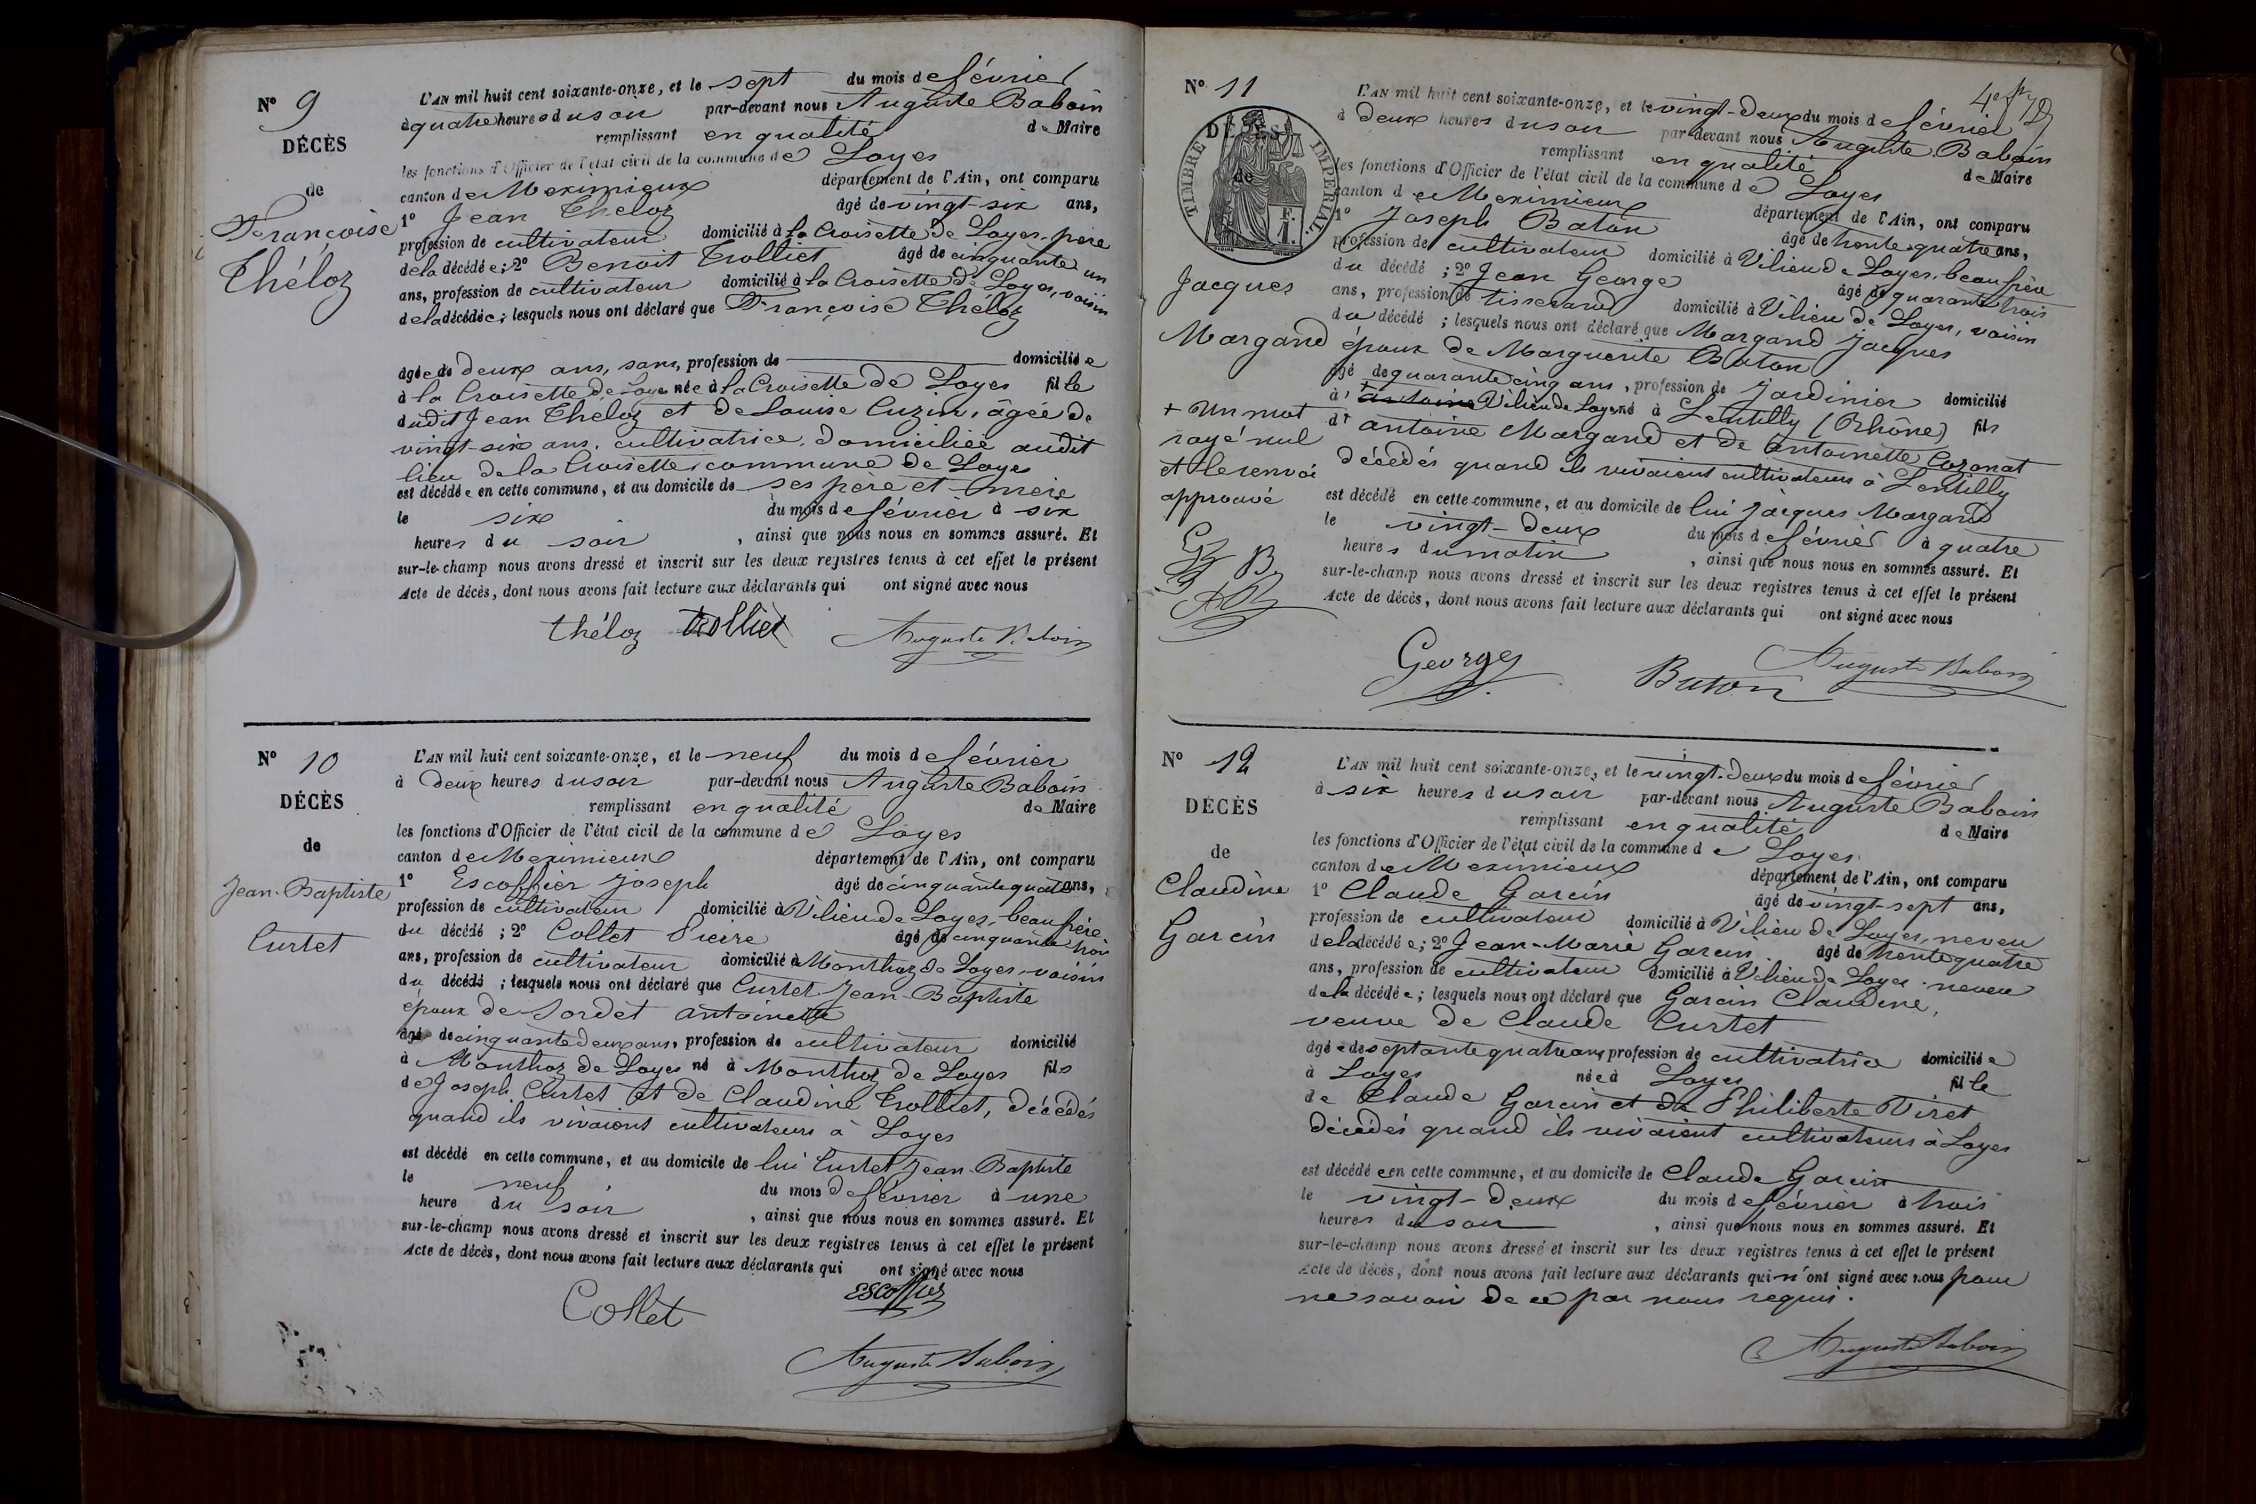 N° 9
DÉCÈS
de
Françoise
Théloz
L'AN mil huit cent soixante-onze, et le sept du mois de février
à quatre heures du soir par-devant nous Auguste Baboin
remplissant en qualité de Maire
les fonctions d'Officier de l'état civil de la commune de Loyes
canton de Meximieux département de l'Ain, ont comparu
1° Jean Theloz âgé de vingt-six ans,
profession de cultivateur domicilié à la Croisette de Loyes, père
de la décédée; 2° Benoit Trolliet âgé de cinquante un
ans, profession de cultivateur domicilié à la Croisette de Loyes, voisin
de la décédée; lesquels nous ont déclaré que Françoise Théloz
âgée de deux ans, sans, profession de domiciliée
à la Croisette de Loyes née à la Croisette de Loyes fille
dudit Jean Theloz et de Louise Cuzin, âgée de
vingt-six ans, cultivatrice, domiciliée audit
lieu de la Croisette, commune de Loyes
est décédée en cette commune, et au domicile de ses père et mère
le six du mois de février à six
heures du soir, ainsi que nous nous en sommes assuré. Et
sur-le-champ nous avons dressé et inscrit sur les deux registres tenus à cet effet le présent
Acte de décès, dont nous avons fait lecture aux déclarants qui ont signé avec nous
théloz trolliet Auguste Baboin
N° 10
DÉCÈS
de
Jean-Baptiste
Curtet
L'AN mil huit cent soixante-onze, et le neuf du mois de février
à deux heures du soir par-devant nous Auguste Baboin
remplissant en qualité de Maire
les fonctions d'Officier de l'état civil de la commune de Loyes
canton de Meximieux département de l'Ain, ont comparu
1° Escoffier Joseph âgé de cinquante quatre ans,
profession de cultivateur domicilié à Vilieu de Loyes, beau frère
du décédé; 2° Collet Pierre âgé de cinquante trois
ans, profession de cultivateur domicilié à Monthoz de Loyes, voisin
du décédé; lesquels nous ont déclaré que Curtet Jean-Baptiste
époux de Sordet antoinette
âgé de cinquante deux ans, profession de cultivateur domicilié
à Monthoz de Loyes né à Monthoz de Loyes fils
de Joseph Curtet et de Claudine Trolliet, décédés
quand ils vivaient cultivateurs à Loyes
est décédé en cette commune, et au domicile de lui Curtet Jean-Baptiste
le neuf du mois de février à une
heure du soir, ainsi que nous nous en sommes assuré. Et
sur-le-champ nous avons dressé et inscrit sur les deux registres tenus à cet effet le présent
Acte de décès, dont nous avons fait lecture aux déclarants qui ont signé avec nous
Collet Escoffier
Auguste Baboin
N° 11
DÉCÈS
de
TIMBRE IMPÉRIAL
F.
1.
Jacques
Margand
+ un mot
rayé nul
et le renvoi
approuvé
G
B
L'AN mil huit cent soixante-onze, et le vingt-deux du mois de février
à deux heures du soir par-devant nous Auguste Baboin
remplissant en qualité de Maire
les fonctions d'Officier de l'état civil de la commune de Loyes
canton de Meximieux département de l'Ain, ont comparu
1° Joseph Baton âgé de trente quatre ans,
profession de cultivateur domicilié à Vilieu de Loyes, beau frère
du décédé; 2° Jean George âgé de quarante trois
ans, profession de tisserand domicilié à Vilieu de Loyes, voisin
du décédé; lesquels nous ont déclaré que Margand Jacques
époux de Marguerite Baton
âgé de quarante cinq ans, profession de Jardinier domicilié
à + antoine Vilieu de Loyes né à Lentilly (Rhône) fils
d' antoine Margand et de antoinette Cozonat
décédés quand ils vivaient cultivateurs à Lentilly
est décédé en cette commune, et au domicile de lui Jacques Margand
le vingt-deux du mois de février à quatre
heures du matin, ainsi que nous nous en sommes assuré. Et
sur-le-champ nous avons dressé et inscrit sur les deux registres tenus à cet effet le présent
Acte de décès, dont nous avons fait lecture aux déclarants qui ont signé avec nous
George Baton Auguste Baboin
N° 12
DÉCÈS
de
Claudine
Garcin
L'AN mil huit cent soixante-onze, et le vingt-deux du mois de février
à six heures du soir par-devant nous Auguste Baboin
remplissant en qualité de Maire
les fonctions d'Officier de l'état civil de la commune de Loyes
canton de Meximieux département de l'Ain, ont comparu
1° Claude Garcin âgé de vingt-sept ans,
profession de cultivateur domicilié à Vilieu de Loyes, neveu
de la décédée; 2° Jean-Marie Garcin âgé de trente quatre
ans, profession de cultivateur domicilié à Vilieu de Loyes, neveu
de la décédée; lesquels nous ont déclaré que Garcin Claudine,
veuve de Claude Curtet
âgée de septante quatre ans, profession de cultivatrice domiciliée
à Loyes née à Loyes fille
de Claude Garcin et de Philiberte Viret
décédés quand ils vivaient cultivateurs à Loyes
est décédée en cette commune, et au domicile de Claude Garcin
le vingt-deux du mois de février à trois
heures du soir, ainsi que nous nous en sommes assuré. Et
sur-le-champ nous avons dressé et inscrit sur les deux registres tenus à cet effet le présent
Acte de décès, dont nous avons fait lecture aux déclarants qui n'ont signé avec nous pour
ne savoir de ce par nous requis.
Auguste Baboin